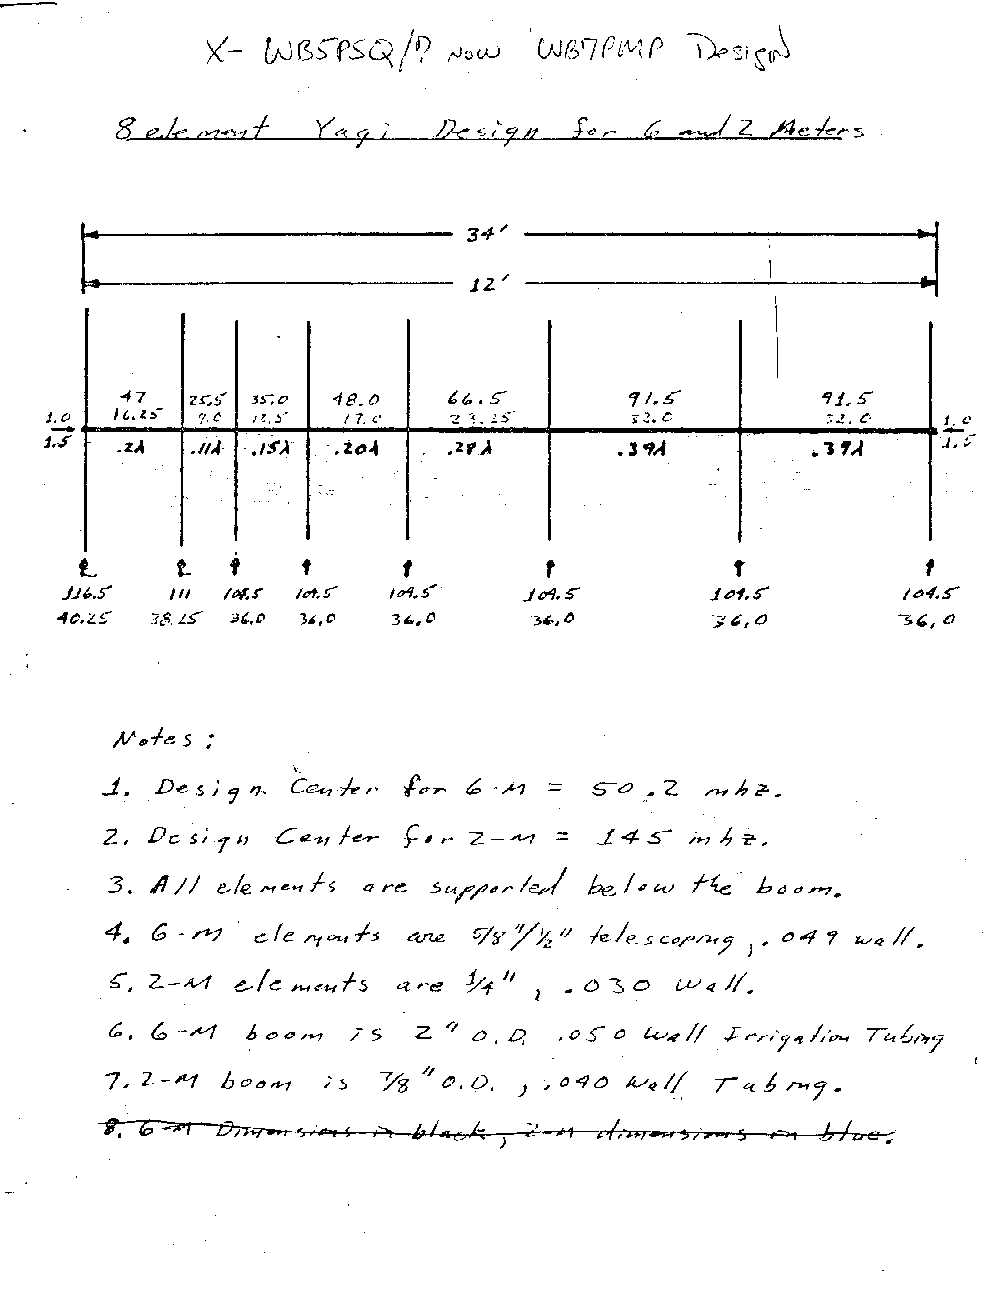 X- WB5PSQ/7 Now WB7PMP Design
8 element Yagi Design for 6 and 2 Meters
34'
12'
47 25.5 35.0 48.0 66.5 91.5 91.5
1.0 16.25 9.0 12.5 17.0 23.25 32.0 32.0 1.0
1.5 .2λ .11λ .15λ .20λ .28λ .39λ .39λ 1.5
116.5 111 109.5 109.5 109.5 109.5 109.5 109.5
40.25 38.25 36.0 36.0 36.0 36.0 36.0 36.0
Notes:
1. Design Center for 6-M = 50.2 mhz.
2. Design Center for 2-M = 145 mhz.
3. All elements are supported below the boom.
4. 6-M elements are 5/8"/1/2" telescoping, .049 wall.
5. 2-M elements are 1/4", .030 wall.
6. 6-M boom is 2" O.D. .050 wall Irrigation Tubing
7. 2-M boom is 7/8" O.D., .040 wall Tubing.
8. 6-M Dimensions in black, 2-M dimensions in blue.